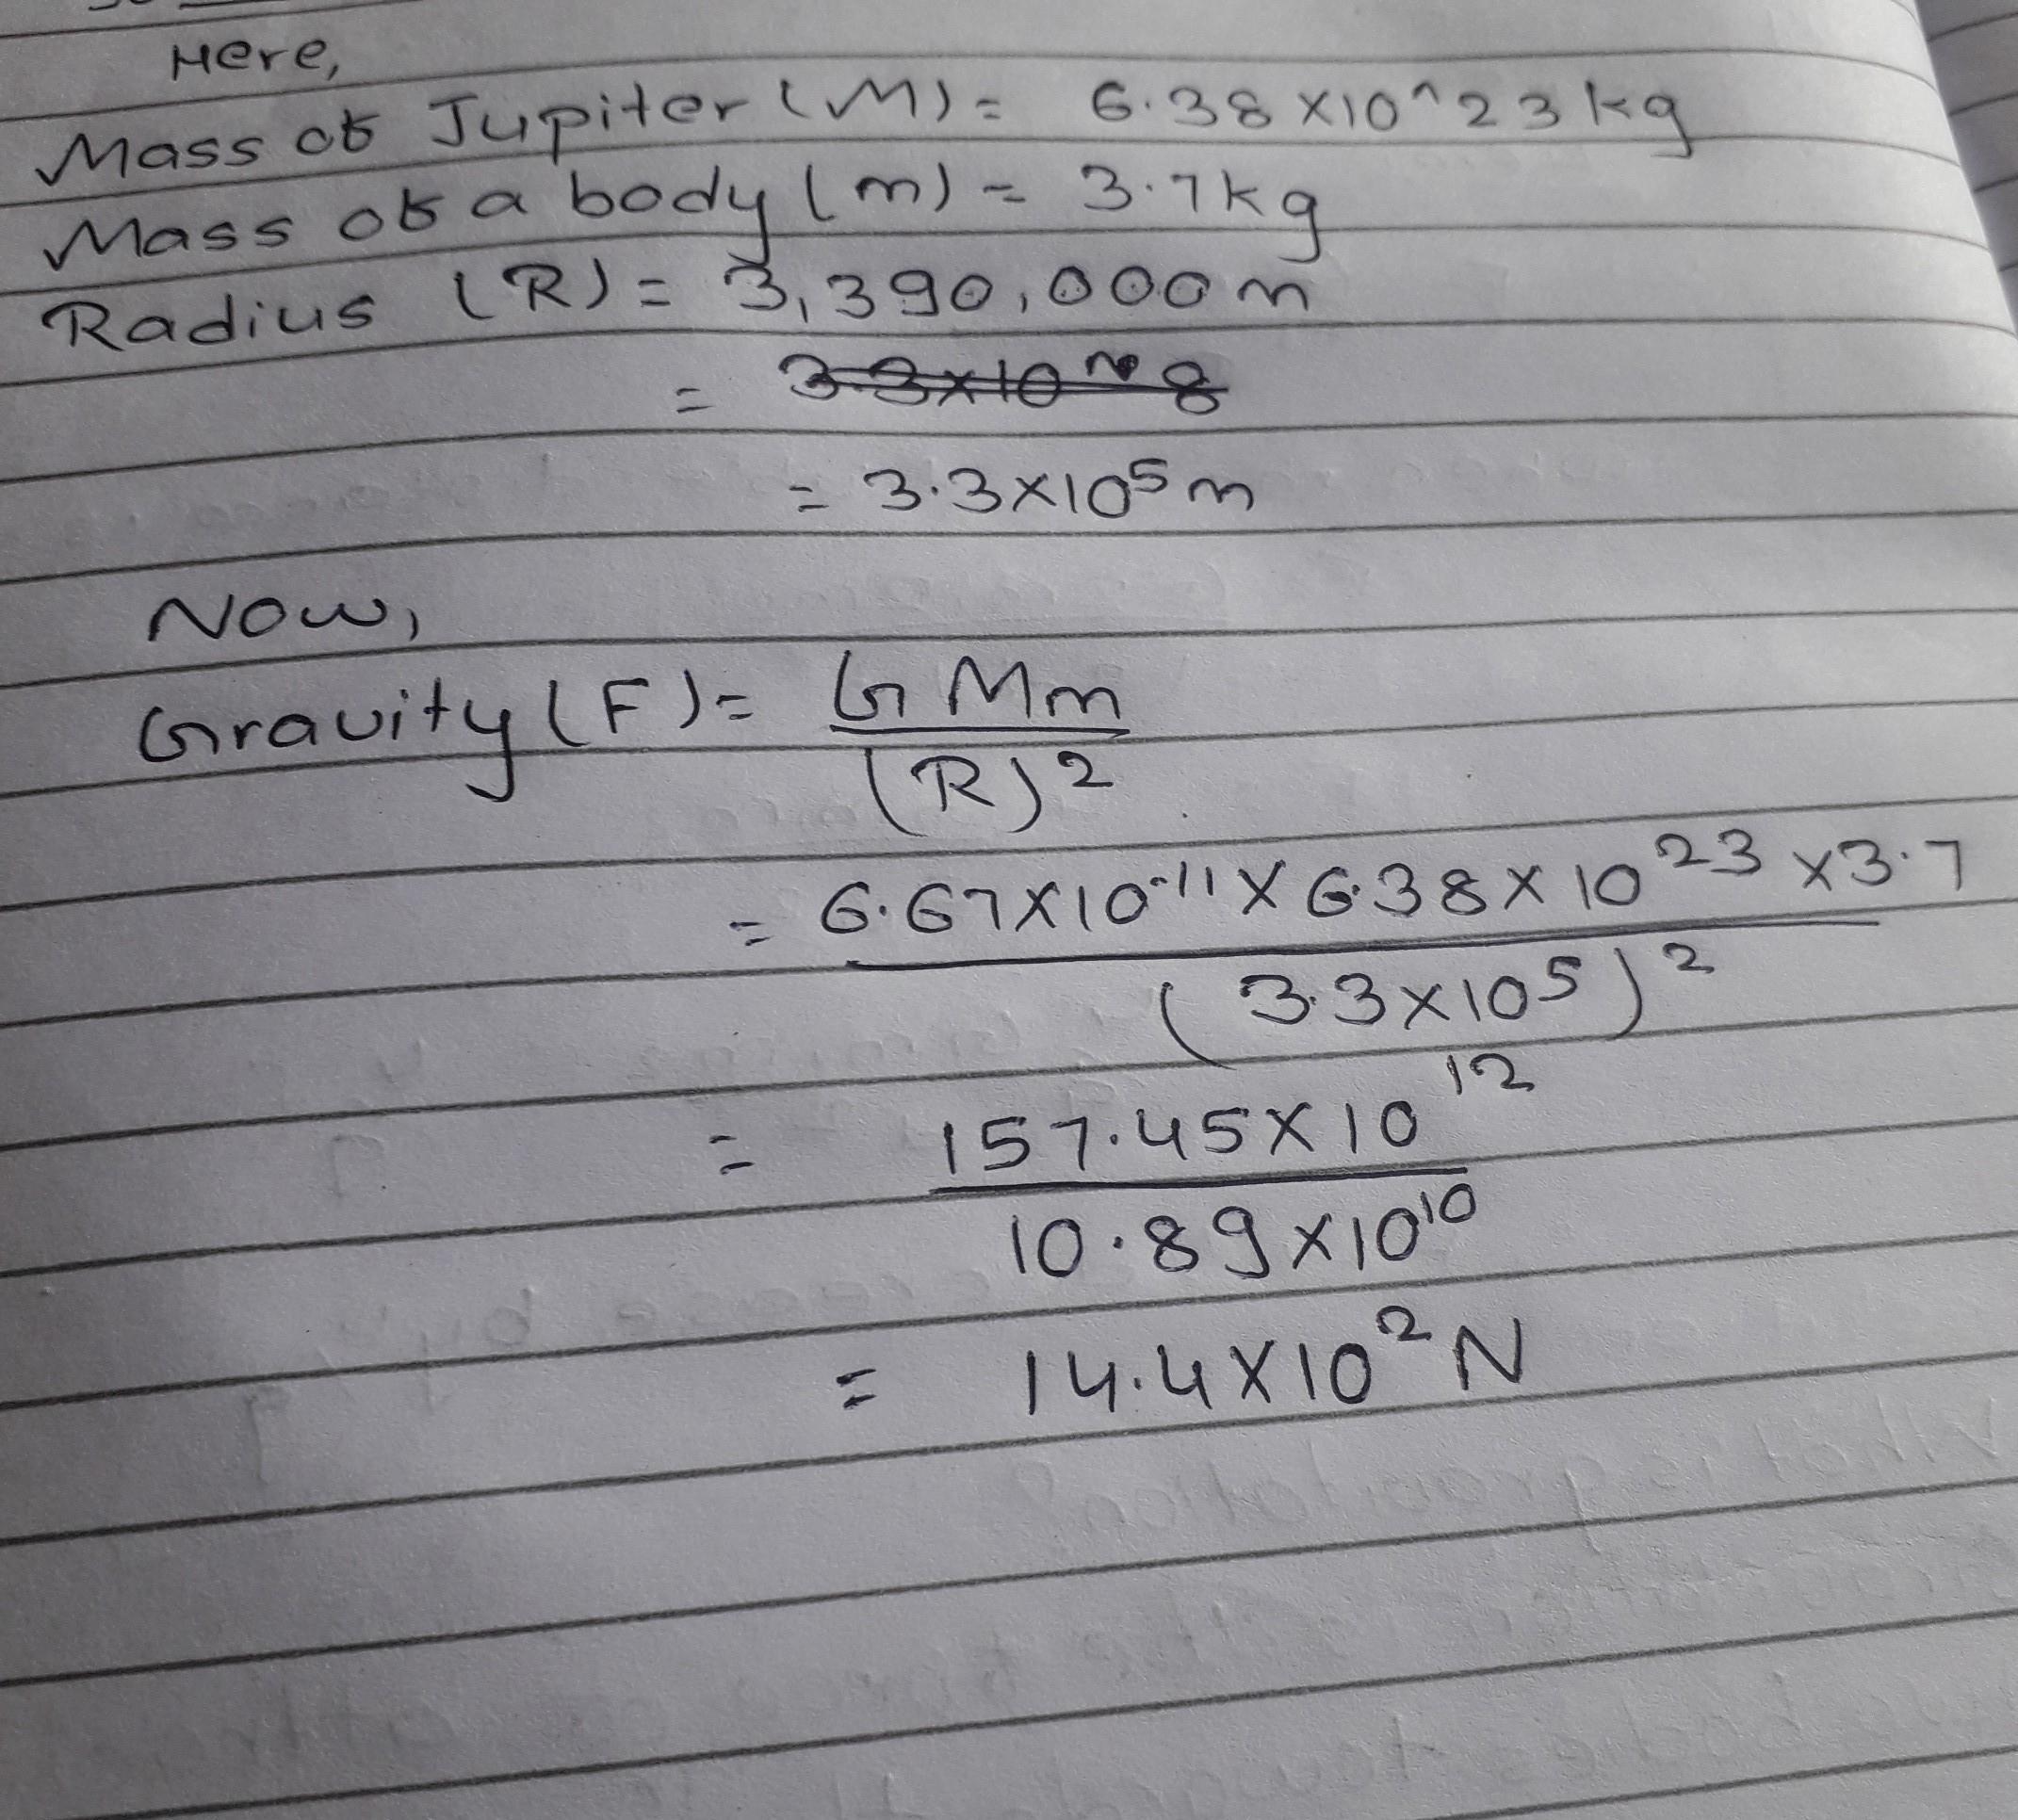 Here,
Mass of Jupiter (M) = 6.38 x10^23 kg
Mass of a body (m) = 3.7 kg
Radius (R) = 3,390,000 m
= 3.3x10^8
= 3.3x10⁵ m
Now,
Gravity (F) = GMm
(R)²
= 6.67x10⁻¹¹ x 6.38 x 10²³ x3.7
(3.3x10⁵)²
= 157.45x10¹²
10.89x10¹⁰
= 14.4x10² N